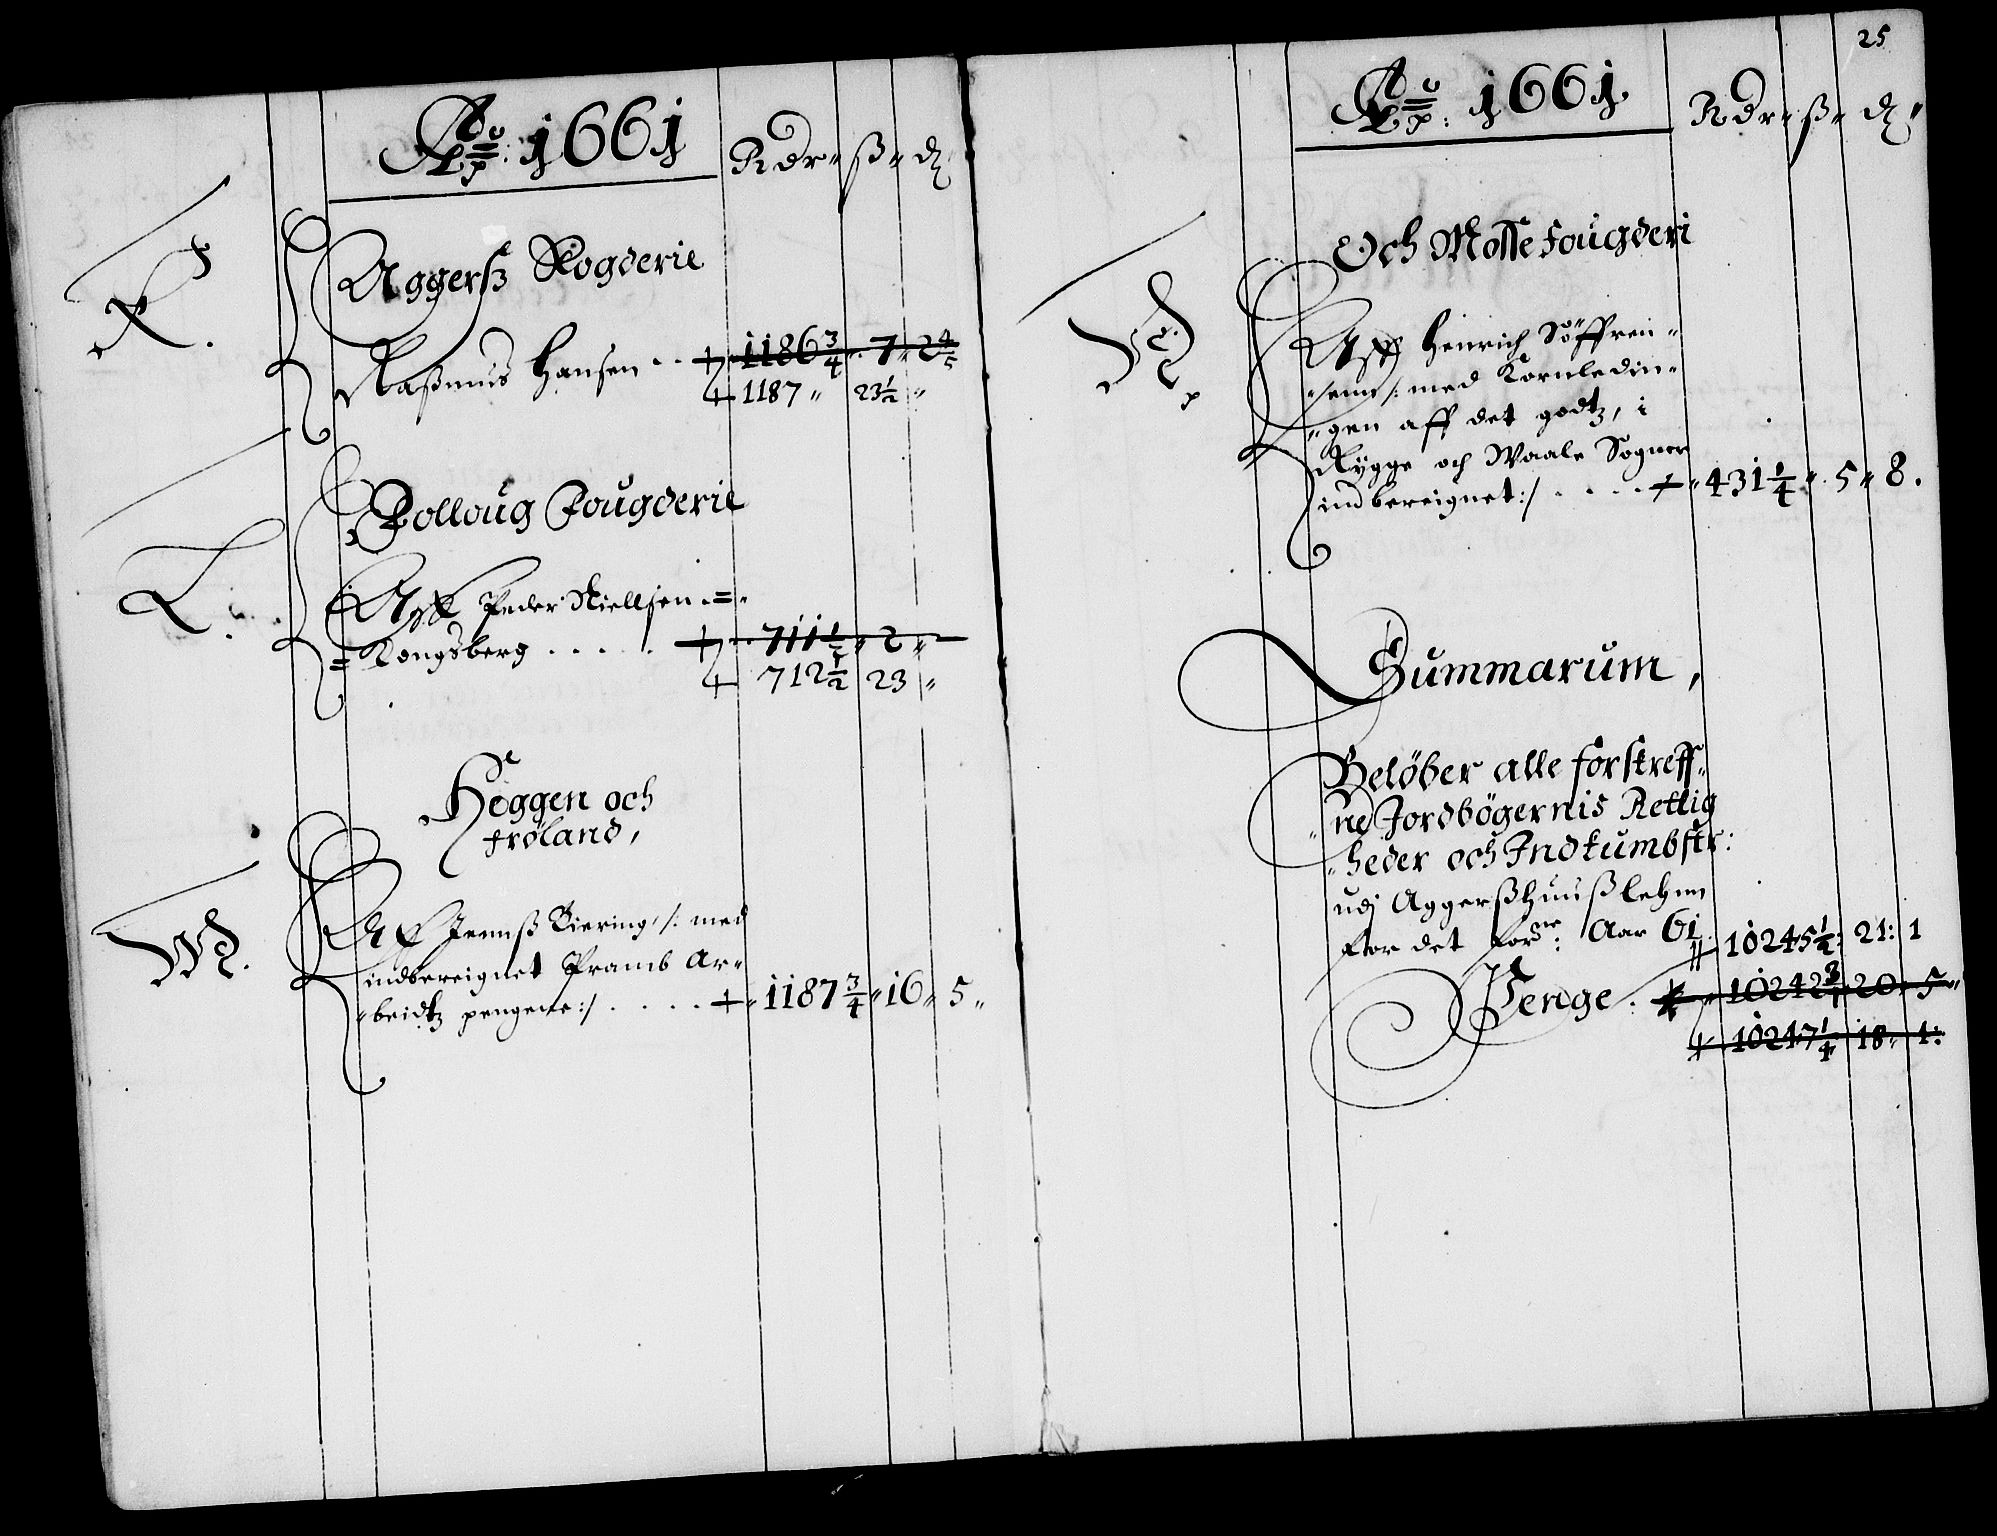 Ao: 1661 Rdr ß ₰
Aggersß Fogderie
K.
Raßmus Hansen . . + 1186 3/4 7 2 4/5
+ 1187 23 1/2
Folloug Fougderie
L.
Aff Peder Niellsen =
= Kongsberg . . . . . + 711 1/2 2
+ 712 1/2 23
Heggen och
frøland,
M.
Aff Jennß Biering /: med
indbereignet Pramb Ar-
beidtz pengene :/ . . . . + 1187 3/4 16 5
25
Ao: 1661 Rdr ß ₰
Och Mosse Fougderi
N.
Aff Henrich Söffren-
senn /: med Kornledin-
gen aff det godtz, i
Rygge och Waale Sogner
indbereignet :/ . . . . + 431 1/4 5 8.
Summarum,
Beløber alle forskreff-
ne Jordbögernis Rettig
heder och Indkumbster:
udj Aggerßhuuß lehnn
for det for: Aar 61 10245 1/2: 21: 1
Penge . 10242 3/4 20 5
+ 10247 1/4 18 1: